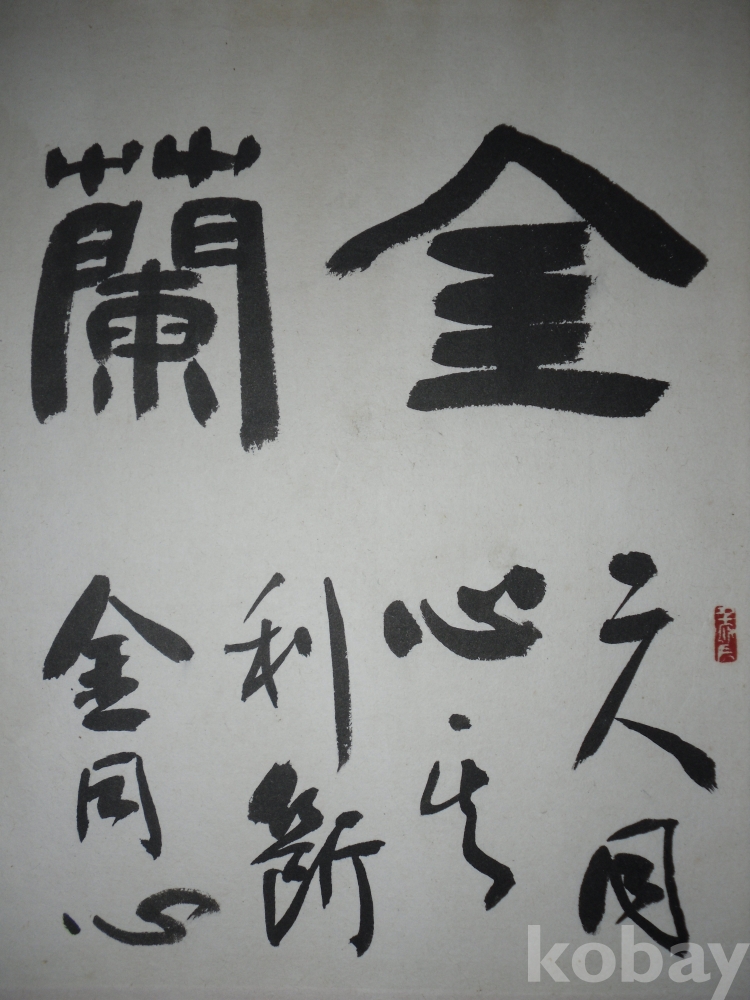 金蘭
二人同
心其
利斷
金同心
kobay